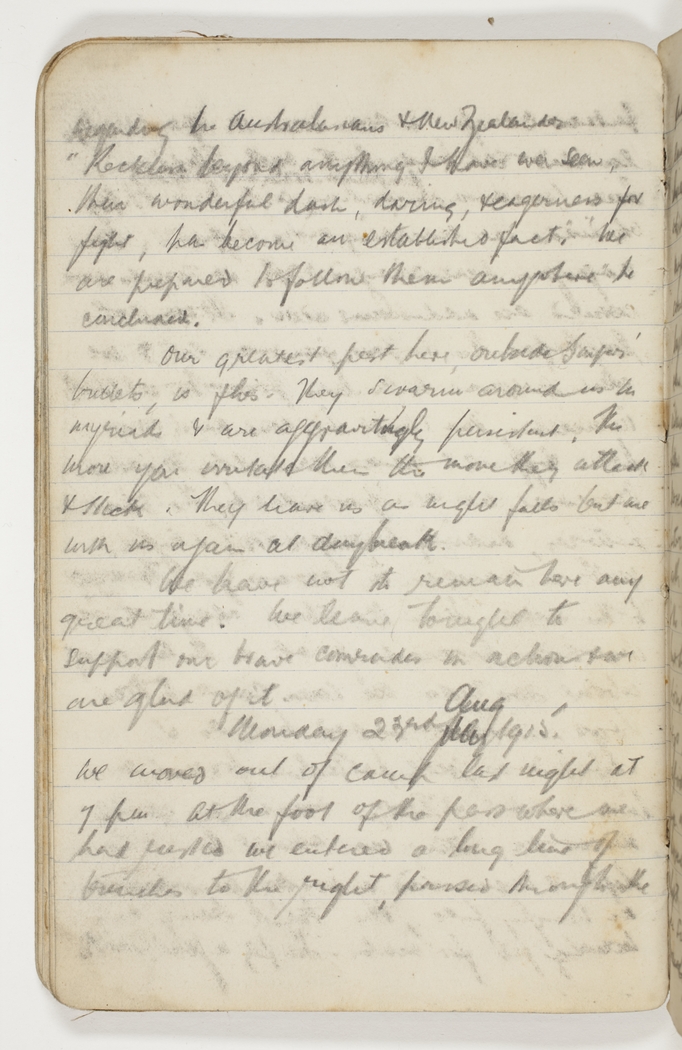 regarding the Australasians & New Zealanders
"Reckless beyond anything I have ever seen,
their wonderful dash, daring, & eagerness for
fight, has become an established fact." "We
are prepared to follow them anywhere" he
concluded.
Our greatest pest here, outside Snipers'
bullets, is flies. They swarm around us in
myriads & are aggravatingly persistent. The
more you irritate them the more they attack
& stick. They leave us as night falls but are
with us again at daybreak.
We have not to remain here any
great time. We leave tonight to
support our brave comrades in action & we
are glad of it.
Aug
Monday 23rd 1915.
We moved out of camp last night at
7 pm. At the foot of the pass where we
had rested we entered a long line of
trenches to the right, passed through the